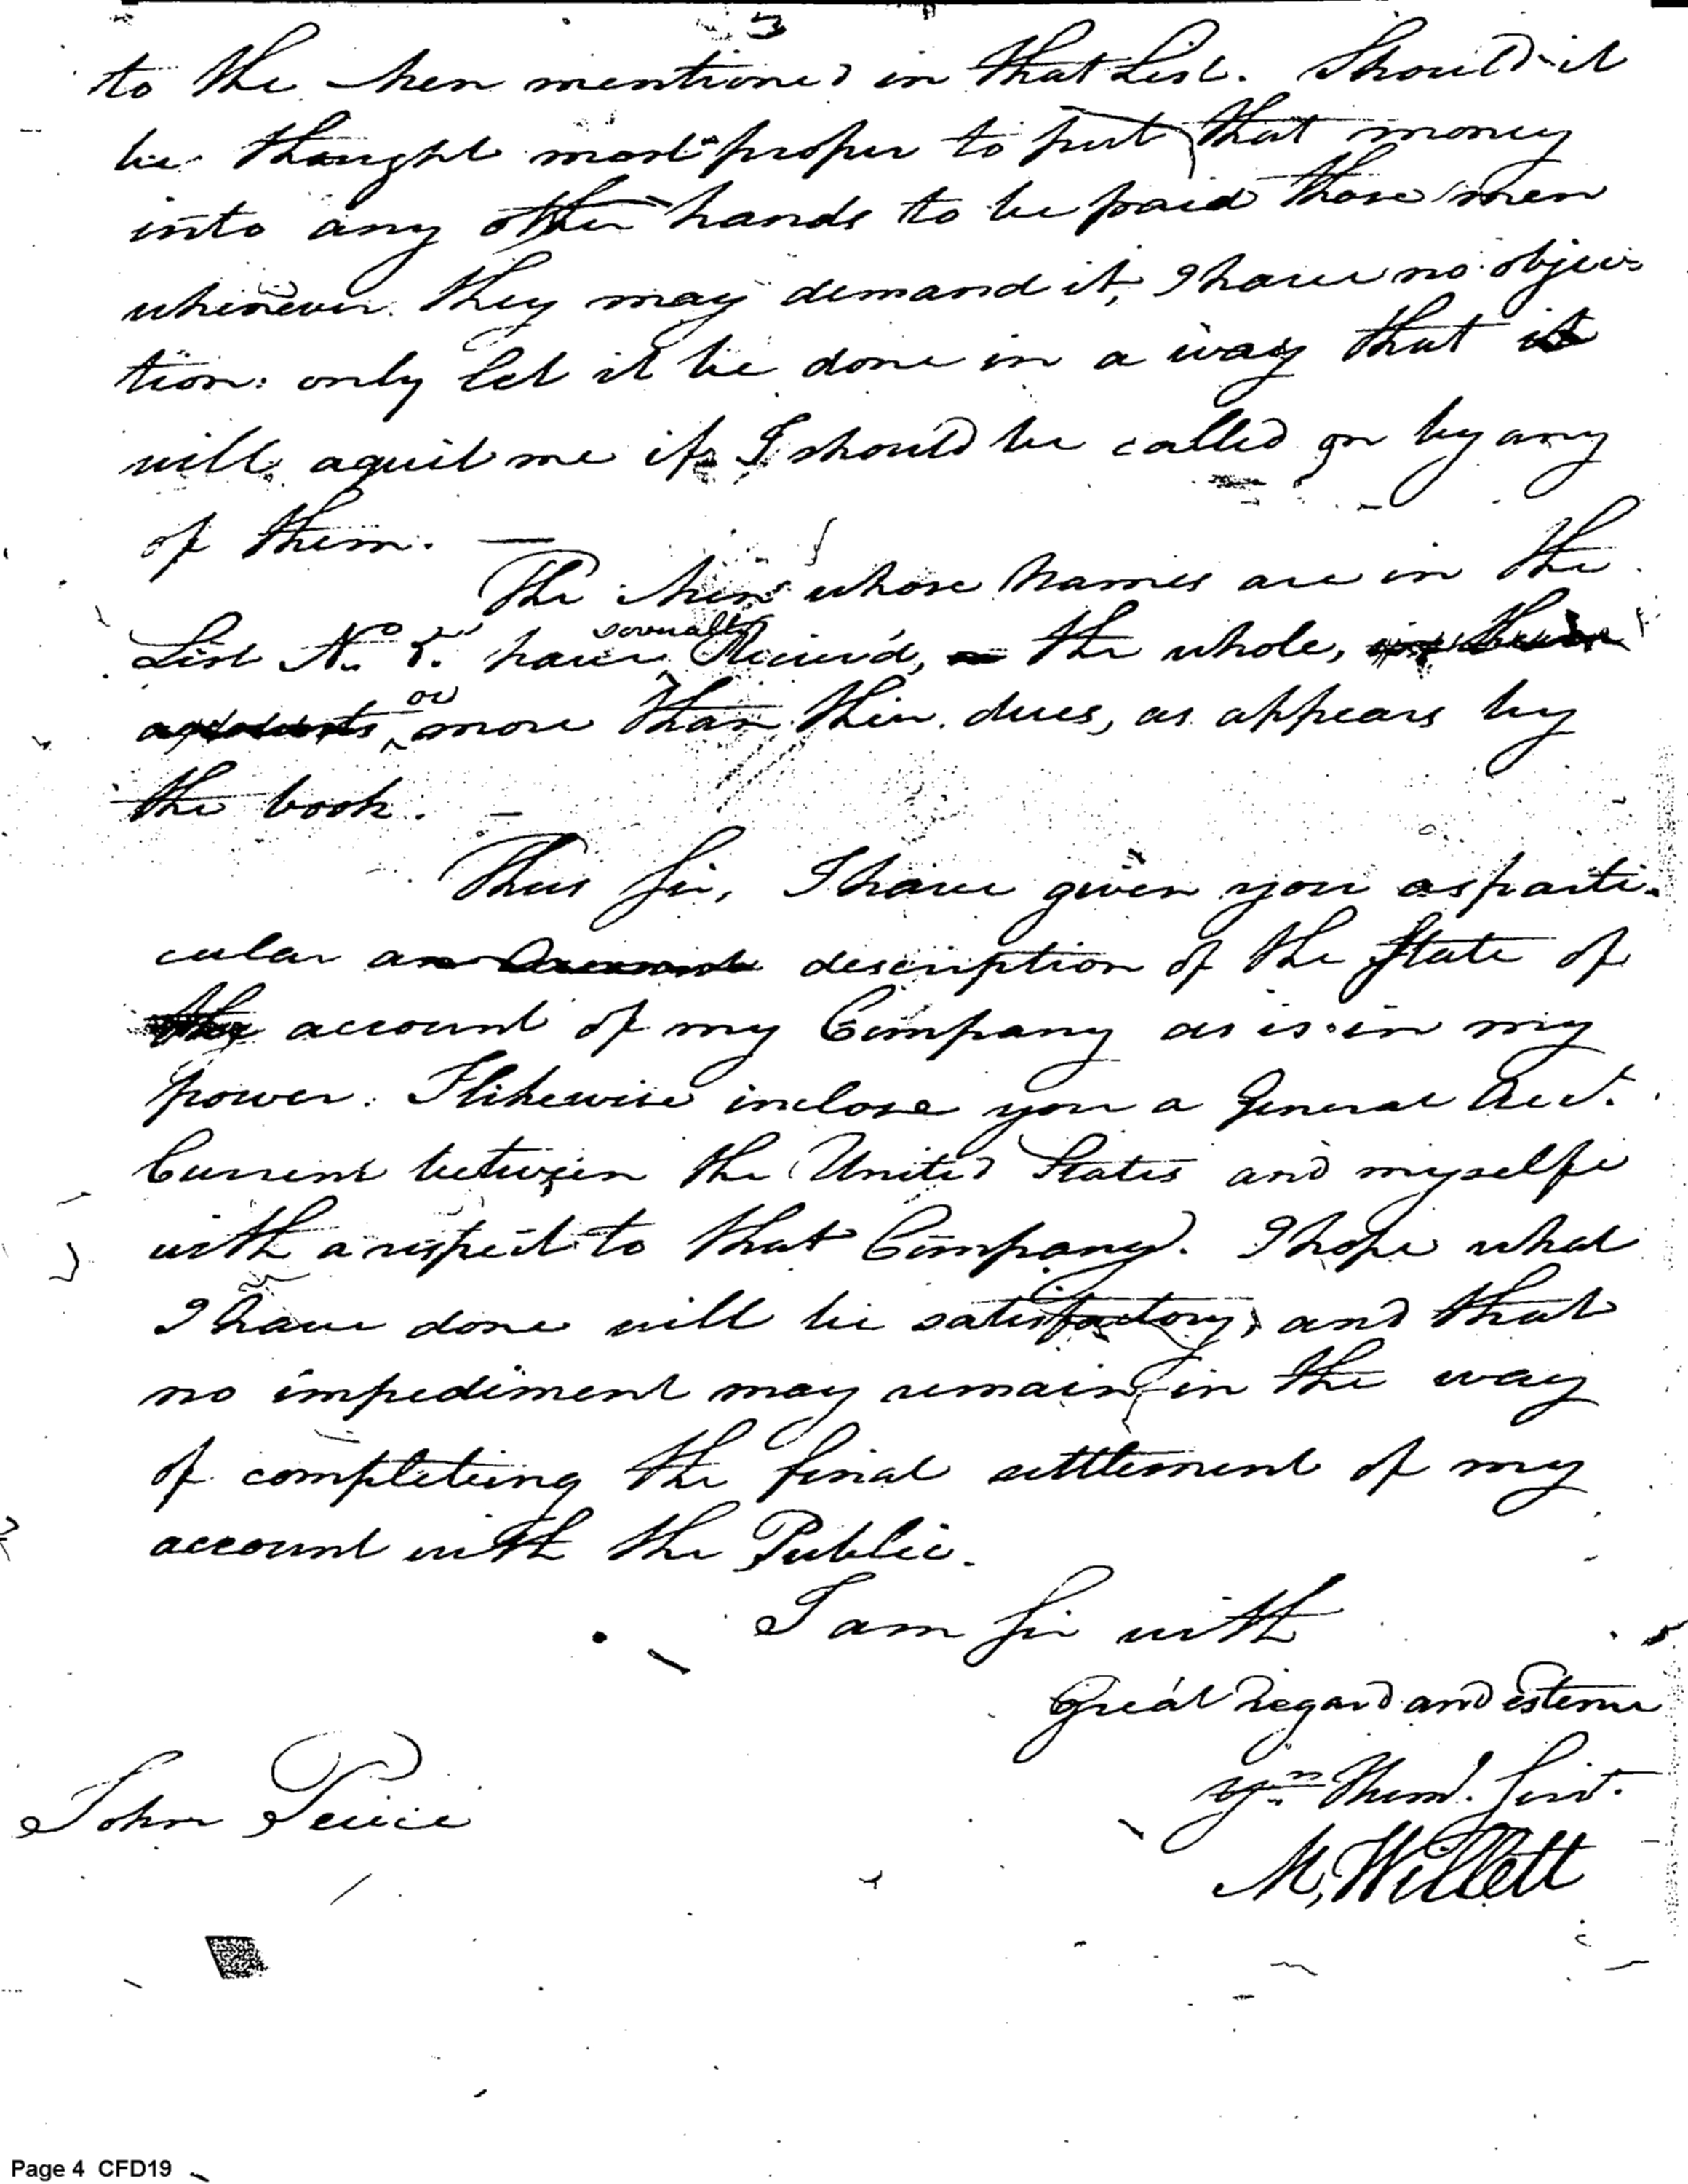 3
to the Men mentioned in that List. Should it
be thought most proper to put that money
into any other hands to be paid those men
whenever they may demand it, I have no objec-
tion: only let it be done in a way that it
will aquit me if I should be called on by any
of them. —
The Men whose Names are in the
List No. 5. have severally Receiv'd, the whole,
or more than their dues, as appears by
the book. —
Thus Sir, I have given you as parti-
cular a description of the State of
account of my Company as is in my
power. I likewise inclose you a General Acct.
Current between the United States and myselfe
with a respect to that Company. I hope what
I have done will be satisfactory, and that
no impediment may remain in the way
of completeing the final settlement of my
account with the Public.
I am Sir with
Great Regard and esteme
Yr. Huml. Servt.
M, Willett
John Peirce
Page 4 CFD19